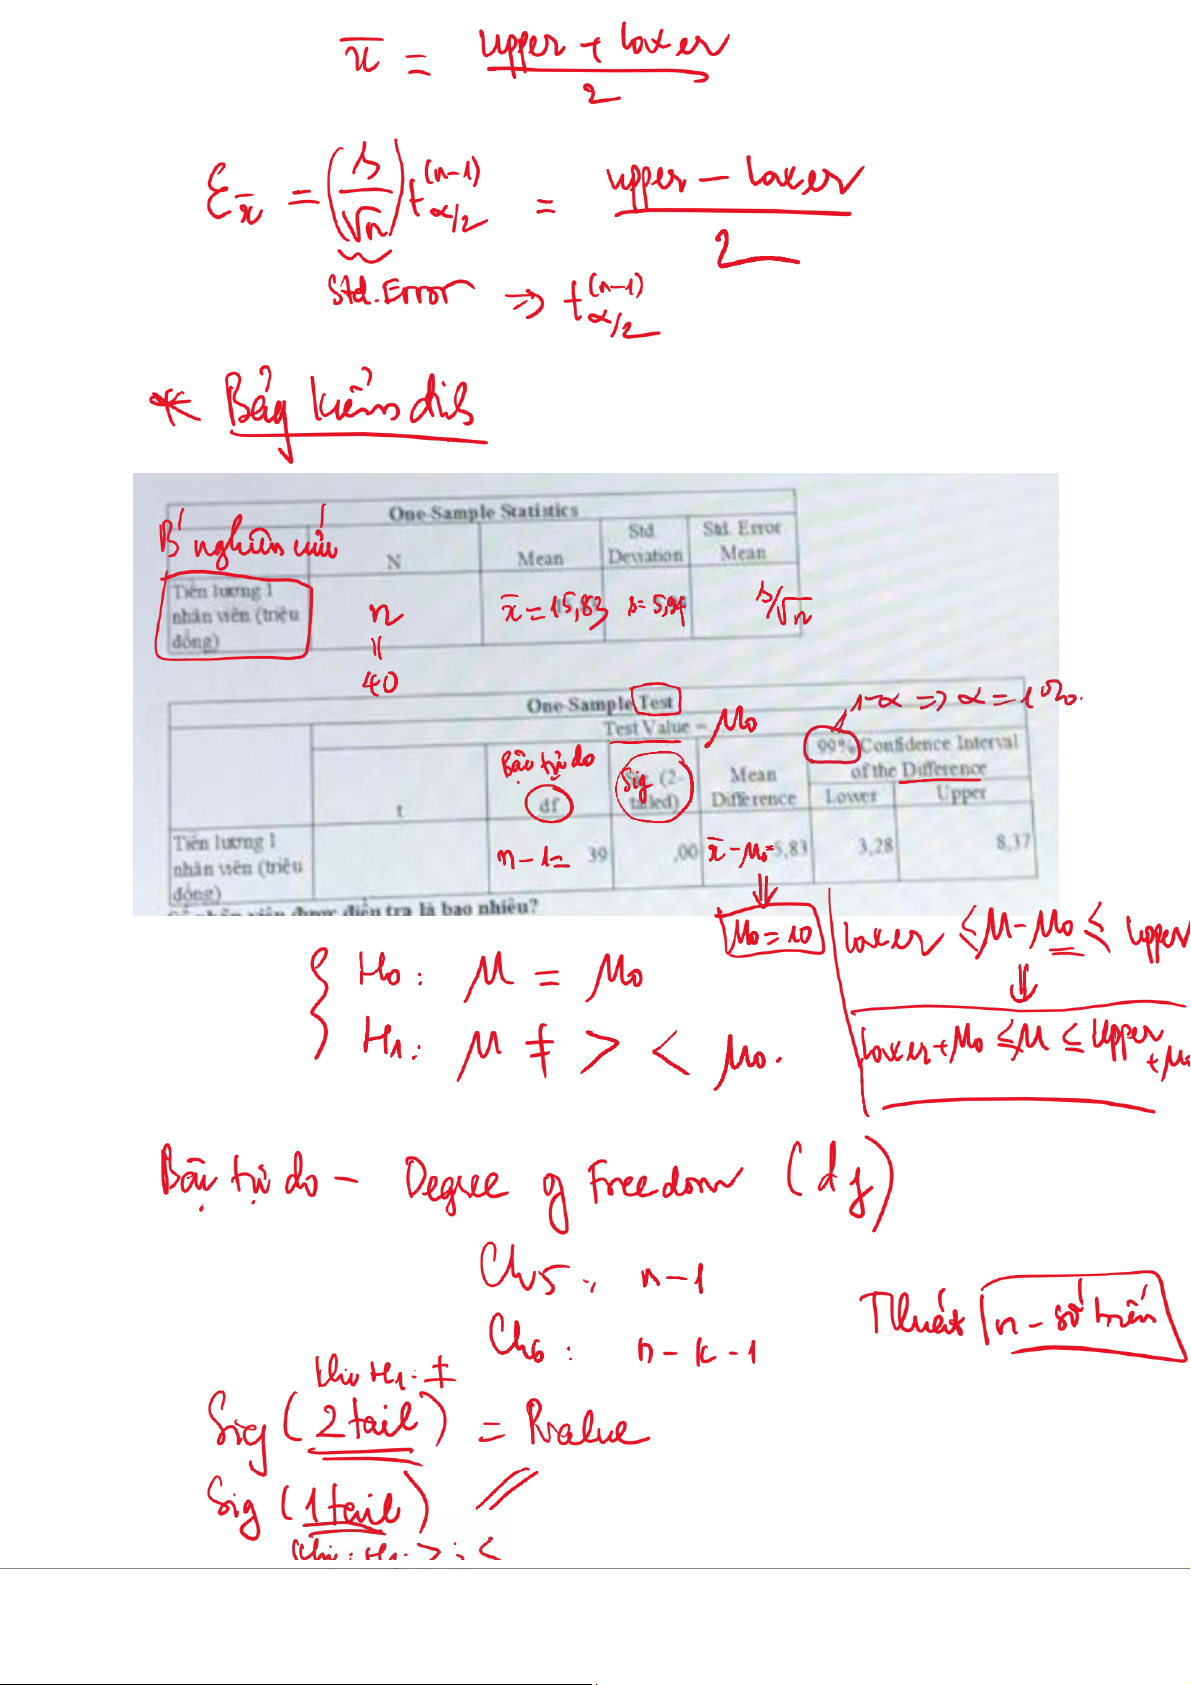 x̄ = (upper + lower) / 2
ε_x̄ = (s/√n) t_{α/2}^{(n-1)} = (upper − lower) / 2
Std.Error ⇒ t_{α/2}^{(n-1)}
* Bảng kiểm định
One-Sample Statistics
B' nghiên cứu N Mean Std. Deviation Std. Error Mean
Tiền lương 1 nhân viên (triệu đồng) n = 40 x̄ = 15,83 s = 5,94 s/√n
One-Sample Test
Test Value = μ₀ 1-α ⇒ α = 1%.
t Bậc tự do df Sig (2-tailed) Mean Difference 99% Confidence Interval of the Difference
Lower Upper
Tiền lương 1 nhân viên (triệu đồng) n-1= 39 ,00 x̄-μ₀=5,83 3,28 8,37
Số nhân viên được điều tra là bao nhiêu?
μ₀ = 10
lower ≤ μ - μ₀ ≤ upper
⇓
lower + μ₀ ≤ μ ≤ upper + μ₀
H₀: μ = μ₀
H₁: μ ≠ > < μ₀.
Bậc tự do - Degree of Freedom (df)
Ch5: n-1
Ch6: n-k-1
n - số biến
khi H₁: ≠
Sig (2tail) = Pvalue
Sig (1tail) //
khi: H₁: > ; <